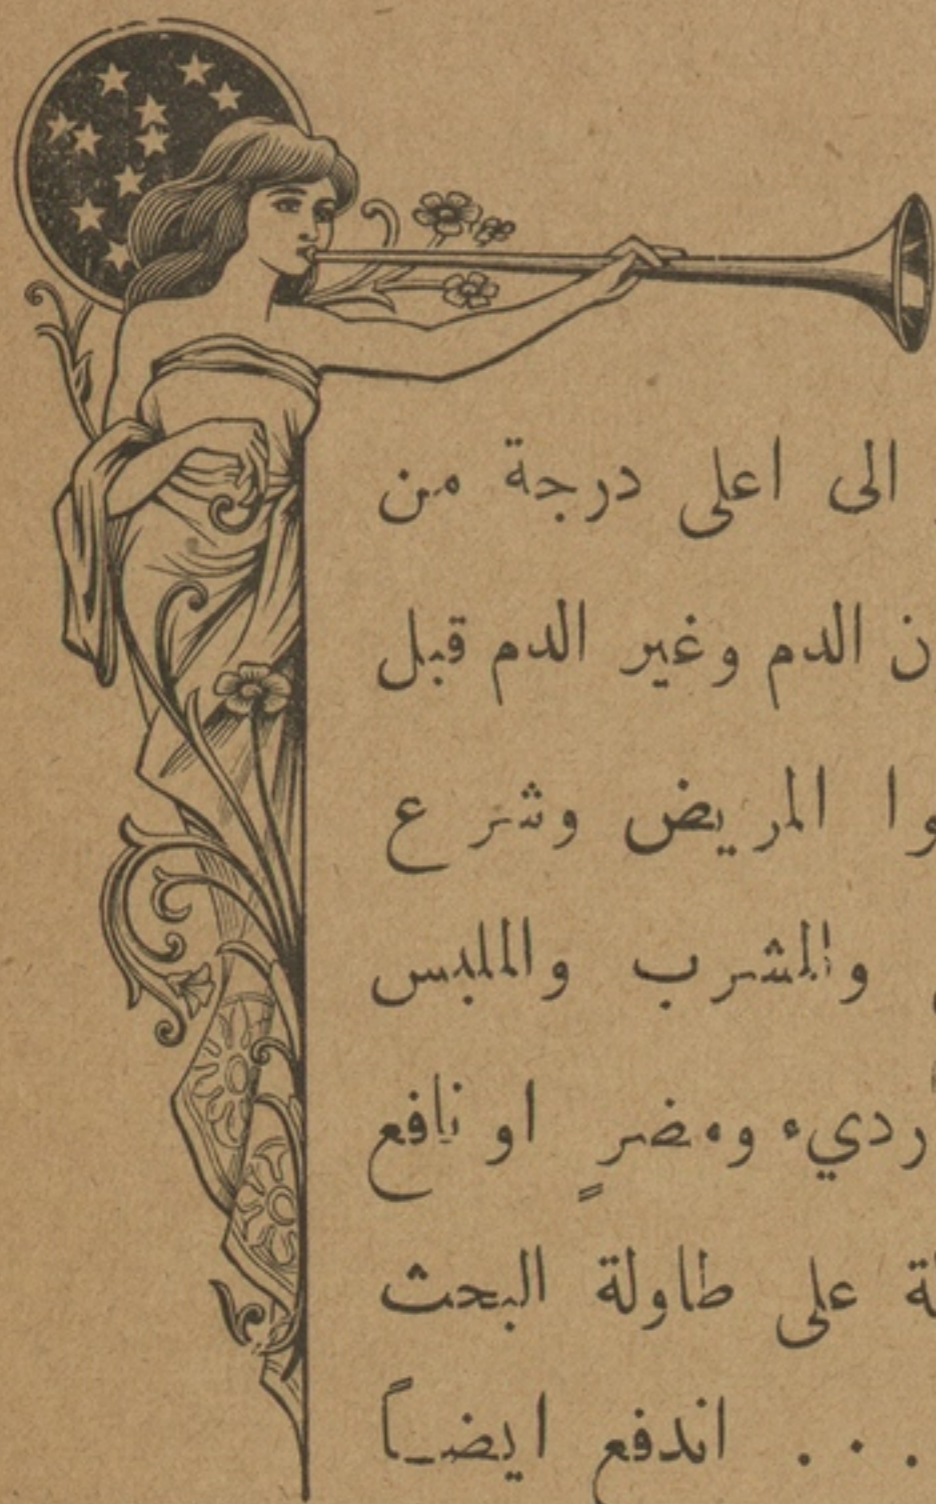 الى اعلى درجة من
ن الدم وغير الدم قبل
وا المريض وشرع
والمشرب والملبس
رديء ومضرٍ او نافع
ة على طاولة البحث
. . . اندفع ايضاً